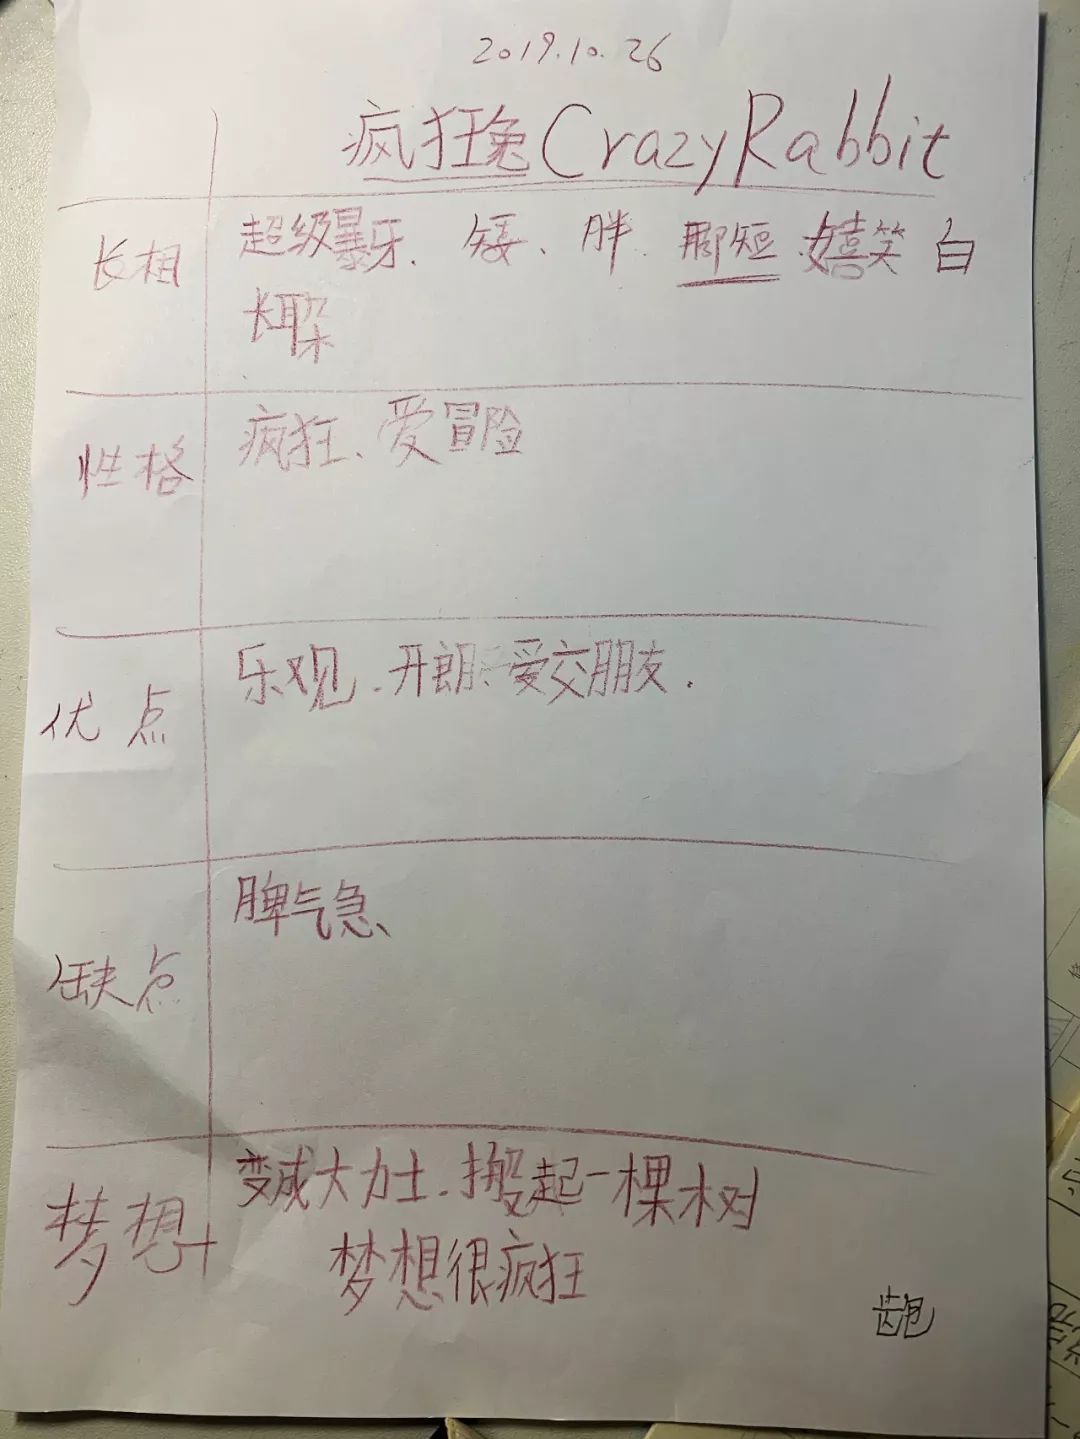 2019.10.26
疯狂兔CrazyRabbit
长相 超级暴牙、矮、胖、脚短、嬉笑 白
长耳朵
性格 疯狂、爱冒险
优点 乐观、开朗、爱交朋友.
缺点 脾气急、
梦想 变成大力士.搬起一棵木树
梦想很疯狂
龅